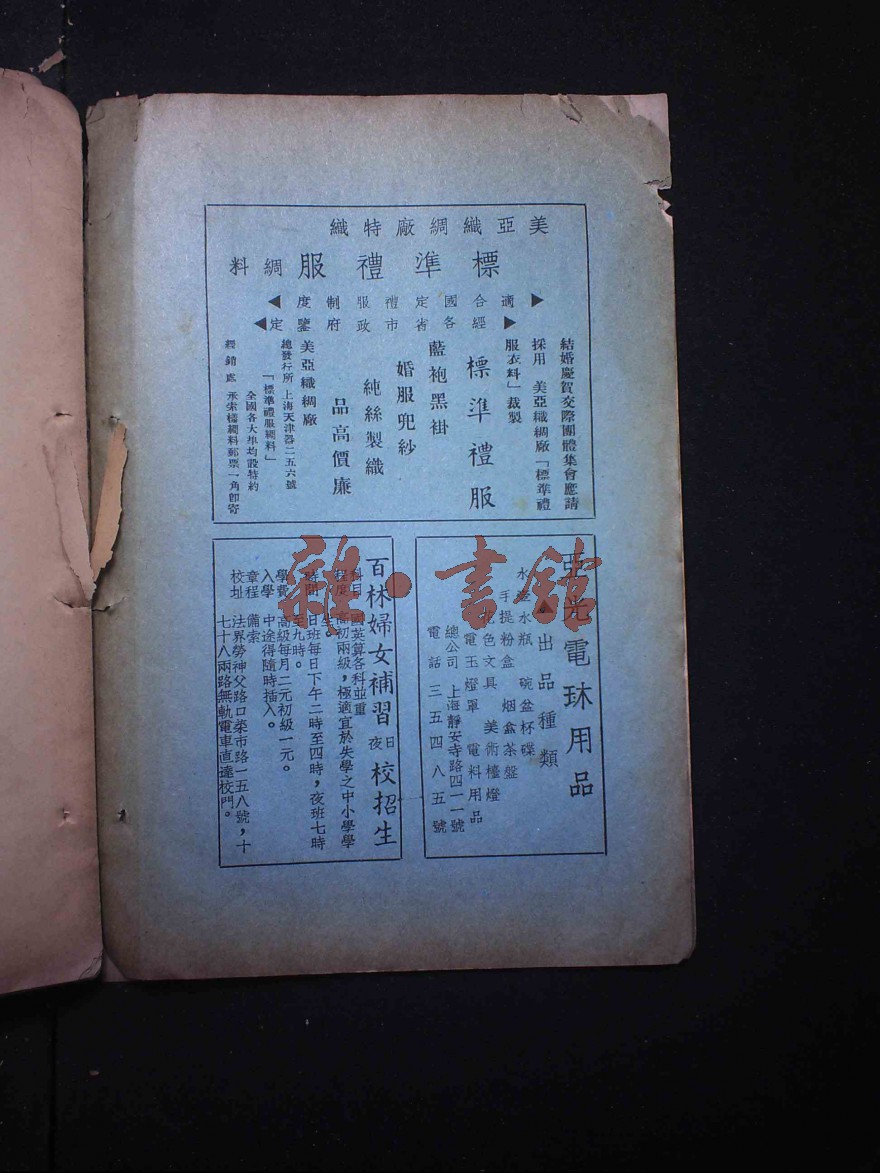 美亞織綢廠特織
標準禮服綢料
▶適合國定禮服制度◀
▶經各省市政府鑒定◀
結婚慶賀交際團體集會應請
採用 美亞織綢廠「標準禮
服衣料」裁製
標準禮服
藍袍黑褂
婚服兜紗
純絲製織
品高價廉
美亞織綢廠
總發行所 上海天津路二五六號
「標準禮服綢料」
全國各大埠均設特約
經銷處 承索樣綢料郵票一角即寄
亞光電玞用品
▲出品種類
水瓶 碗盆杯碟
手提粉盒 烟盒茶盤
色文具 美術檯燈
電玉燈罩 電料用品
總公司 上海靜安寺路四一一號
電話 三五四八五號
百林婦女補習日夜校招生
科目 國英算各科並重
程度 高初兩級，極適宜於失學之中小學學
生。
時間 日班每日下午二時至四時，夜班七時
至九時。
學費 高級每月二元初級一元。
入學 中途得隨時插入。
章程 備索
校址 法界勞神父路口菜市路一五八號，十
七十八兩路無軌電車直達校門。
雜·書館